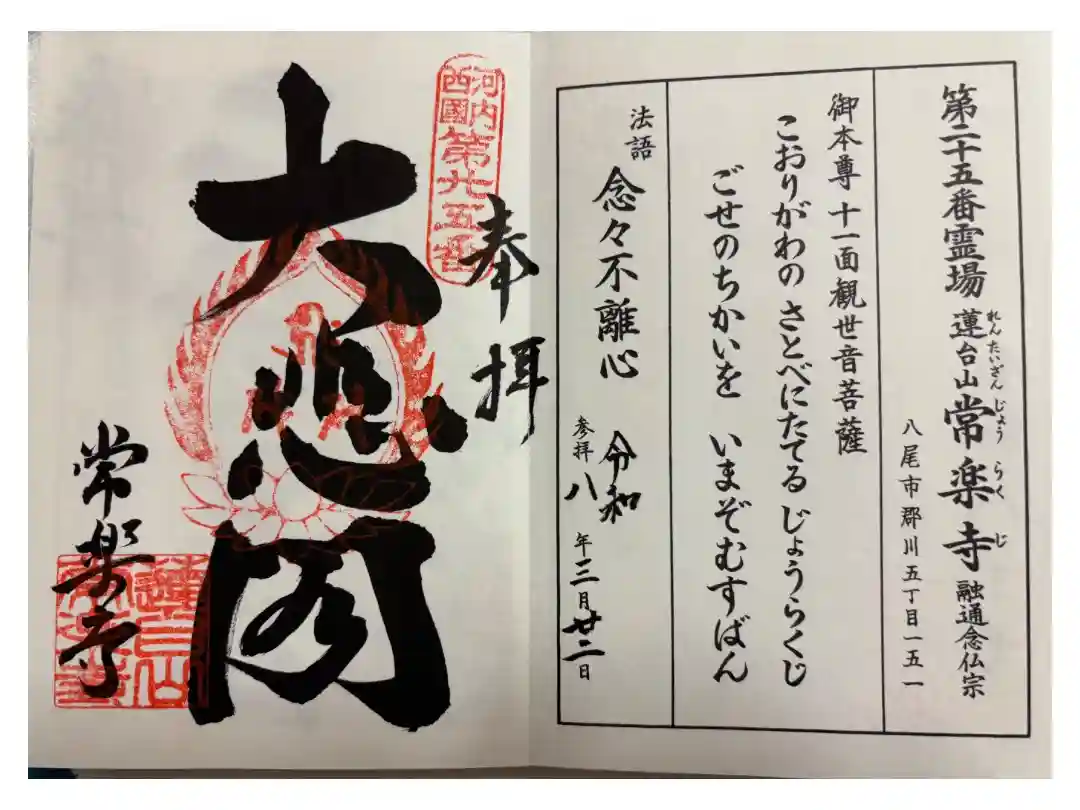 第二十五番霊場 蓮台山 常楽寺 融通念仏宗
れんたいざん じょうらくじ
八尾市郡川五丁目一五一
御本尊 十一面観世音菩薩
こおりがわの さとべにたてる じょうらくじ
ごせのちかいを いまぞむすばん
法語 念々不離心
参拝 令和八年三月廿二日
奉拝
河内西國第廿五番
大悲閣
常楽寺